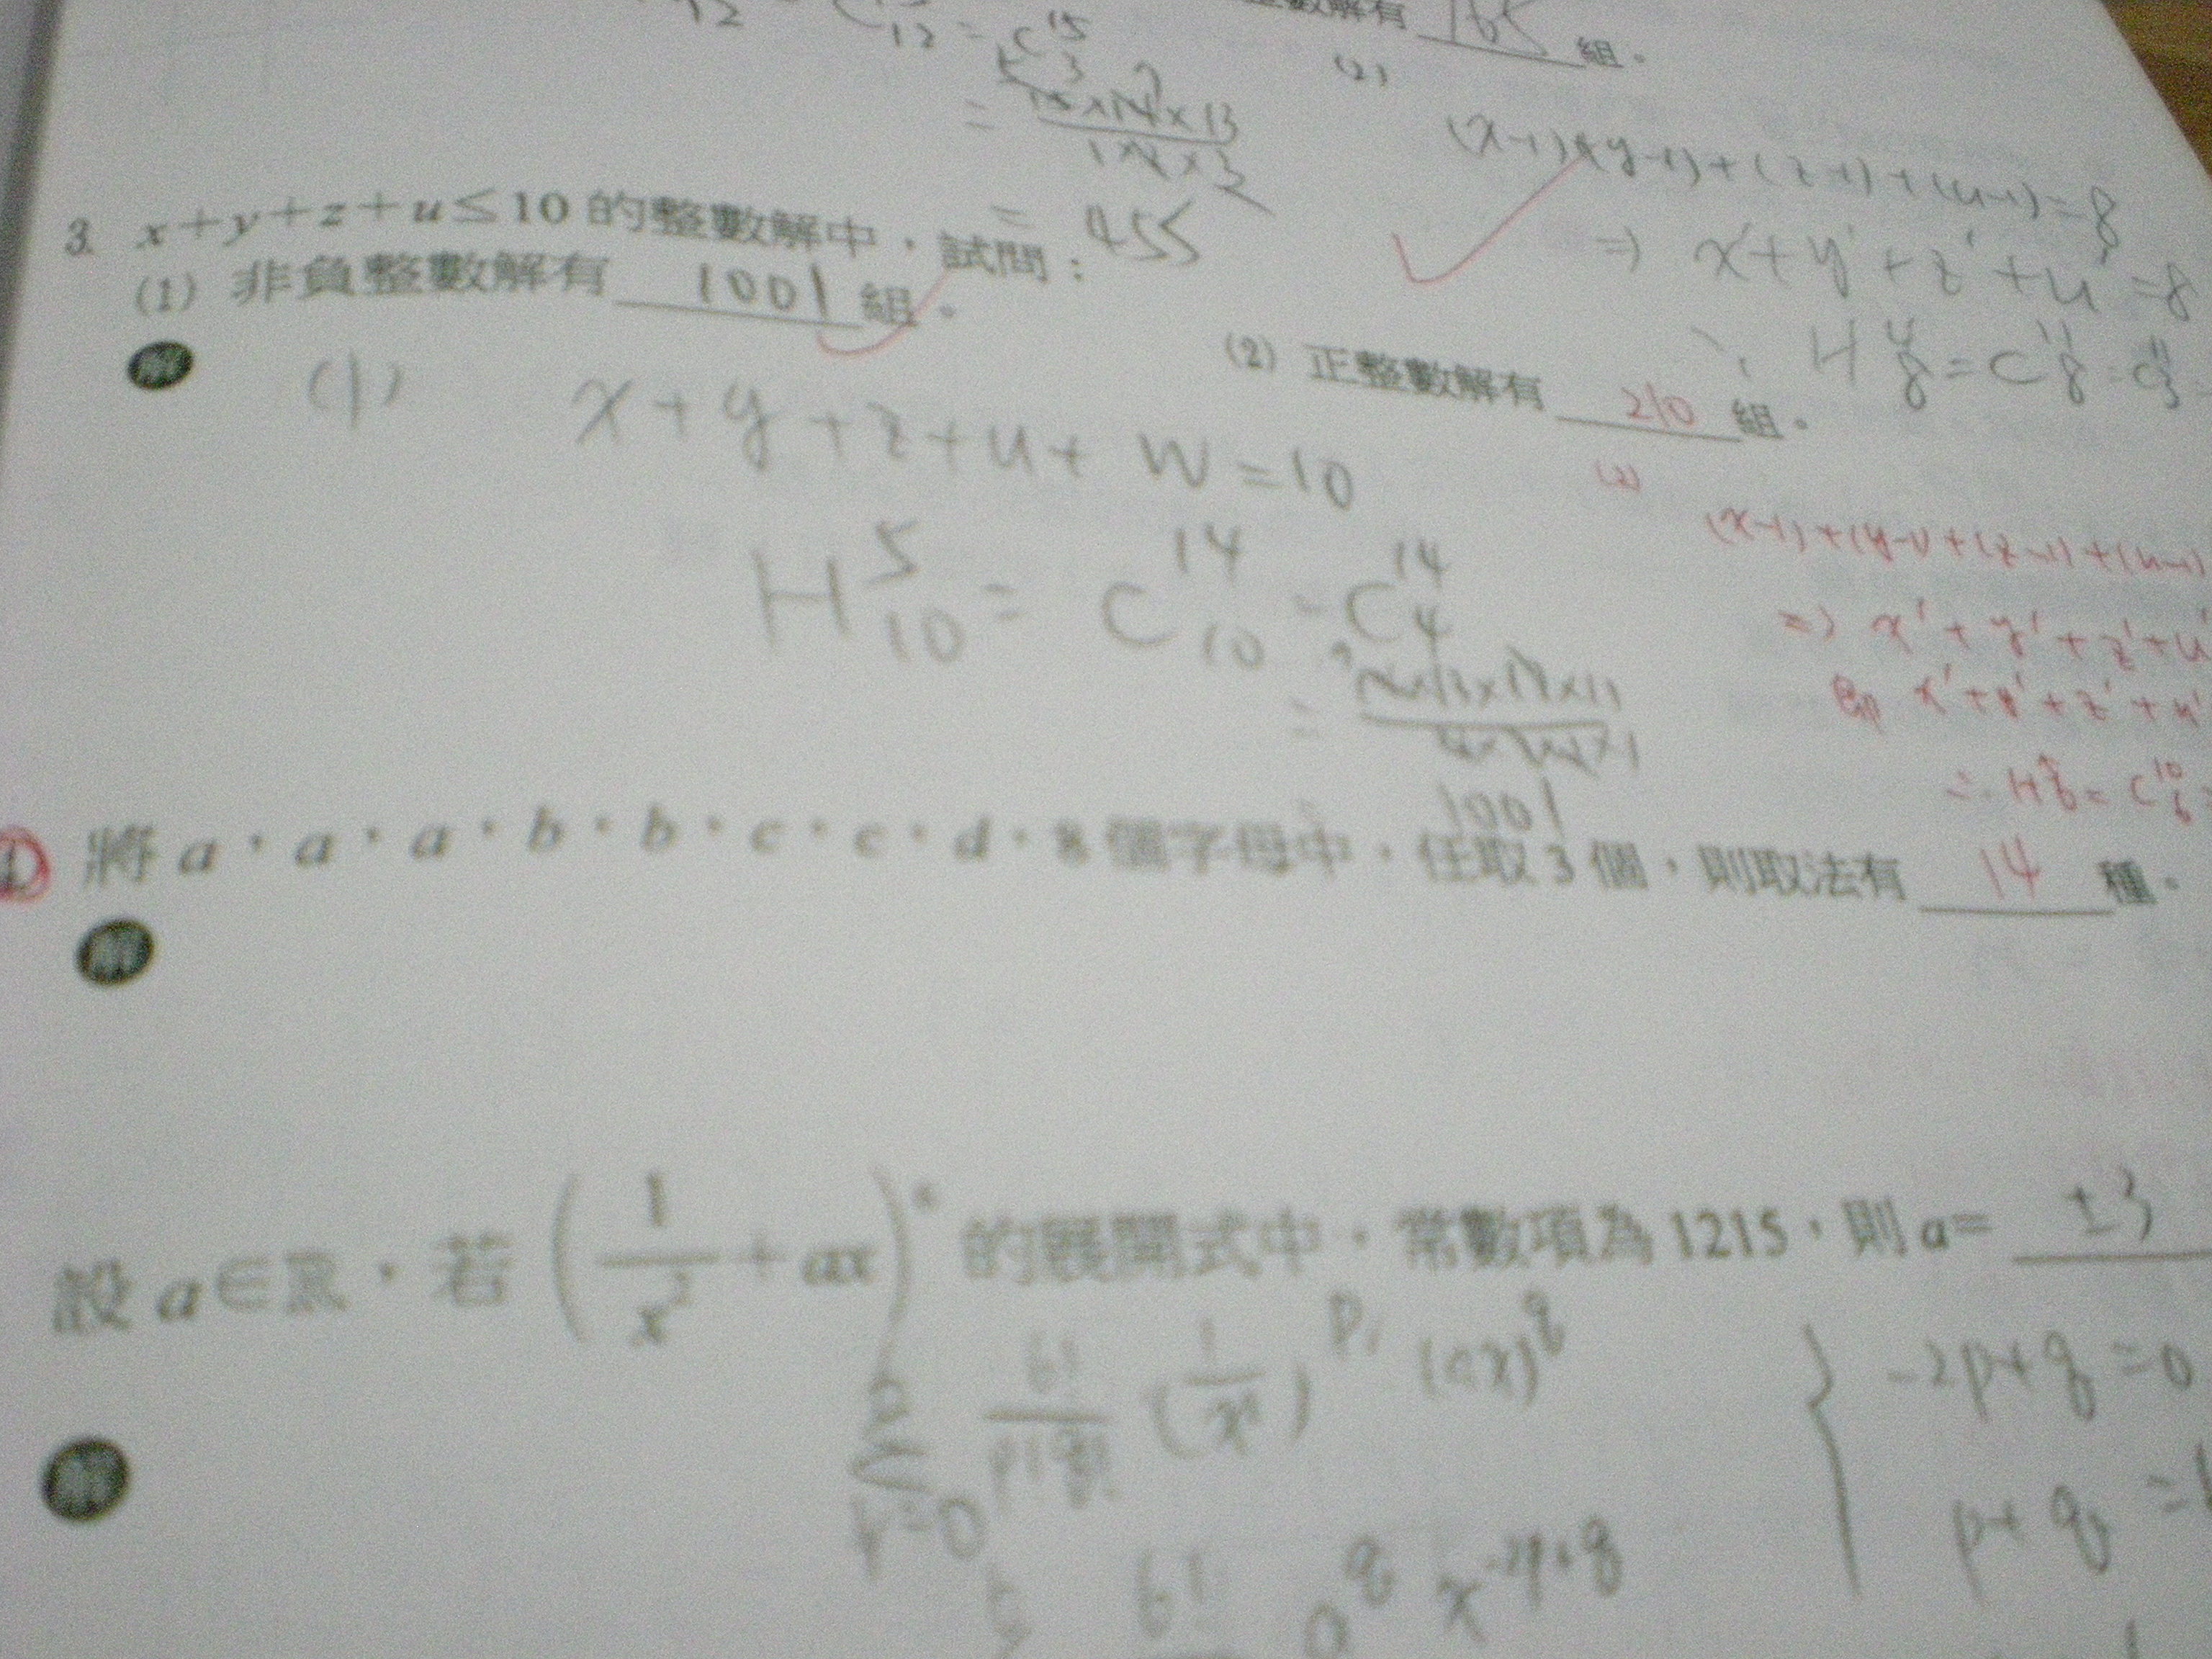 12 = C 15 3
整數解有 165 組。
= 15×14×13
1×2×3
= 455
(2)
(x-1)+(y-1)+(z-1)+(u-1)=8
⇒ x'+y'+z'+u'=8
∴ H 4 8 = C 11 8 = C 11 3
3. x+y+z+u≤10 的整數解中,試問:
(1) 非負整數解有 1001 組。
(2) 正整數解有 210 組。
解
(1) x+y+z+u+w=10
H 5 10 = C 14 10 = C 14 4
= 14×13×12×11
4×3×2×1
= 1001
(2)
(x-1)+(y-1)+(z-1)+(u-1)
⇒ x'+y'+z'+u'
即 x'+y'+z'+u'
∴ H 5 6 = C 10 6
4 將 a,a,a,b,b,c,c,d,8 個字母中,任取 3 個,則取法有 14 種。
解
設 a∈R,若 (1/x² + ax)⁶ 的展開式中,常數項為 1215,則 a= ±3
解
6!/p!q! (1/x²)^p (ax)^q
{ -2p+q=0
p+q=
6! a^q x^-2p+q